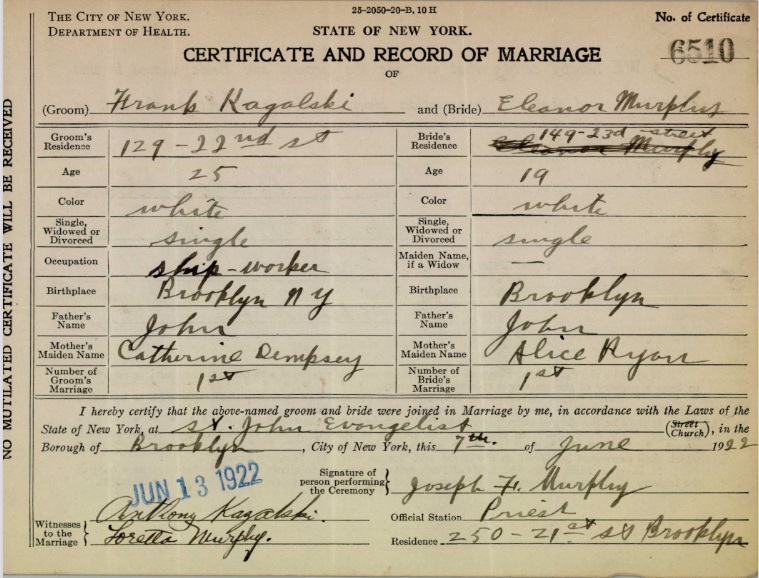 25-2050-20-B, 10 H
THE CITY OF NEW YORK.
DEPARTMENT OF HEALTH.
STATE OF NEW YORK.
No. of Certificate
6510
CERTIFICATE AND RECORD OF MARRIAGE
OF
(Groom) Frank Kagalski and (Bride) Eleanor Murphy
Groom's Residence 129-22nd st Bride's Residence 149-23d street
Eleanor Murphy
Age 25 Age 19
Color white Color white
Single, Widowed or Divorced single Single, Widowed or Divorced single
Occupation ship-worker Maiden Name, if a Widow —
Birthplace Brooklyn NY Birthplace Brooklyn
Father's Name John Father's Name John
Mother's Maiden Name Catherine Dempsey Mother's Maiden Name Alice Ryan
Number of Groom's Marriage 1st Number of Bride's Marriage 1st
I hereby certify that the above-named groom and bride were joined in Marriage by me, in accordance with the Laws of the
State of New York, at St. John Evangelist (Street Church), in the
Borough of Brooklyn, City of New York, this 7th. of June 1922
JUN 13 1922
Signature of person performing the Ceremony Joseph F. Murphy
Witnesses to the Marriage Anthony Kagalski.
Loretta Murphy.
Official Station Priest
Residence 250-21st st Brooklyn
NO MUTILATED CERTIFICATE WILL BE RECEIVED